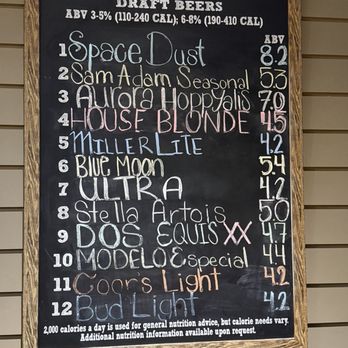 DRAFT BEERS
ABV 3-5% (110-240 CAL); 6-8% (190-410 CAL)
ABV
1 Space Dust 8.2
2 Sam Adam Seasonal 5.3
3 Aurora Hoppyalis 7.0
4 HOUSE BLONDE 4.5
5 MILLER LITE 4.2
6 BLUE MOON 5.4
7 ULTRA 4.2
8 Stella Artois 5.0
9 DOS EQUIS XX 4.7
10 MODELO Especial 4.4
11 Coors Light 4.2
12 Bud Light 4.2
2,000 calories a day is used for general nutrition advice, but calorie needs vary.
Additional nutrition information available upon request.